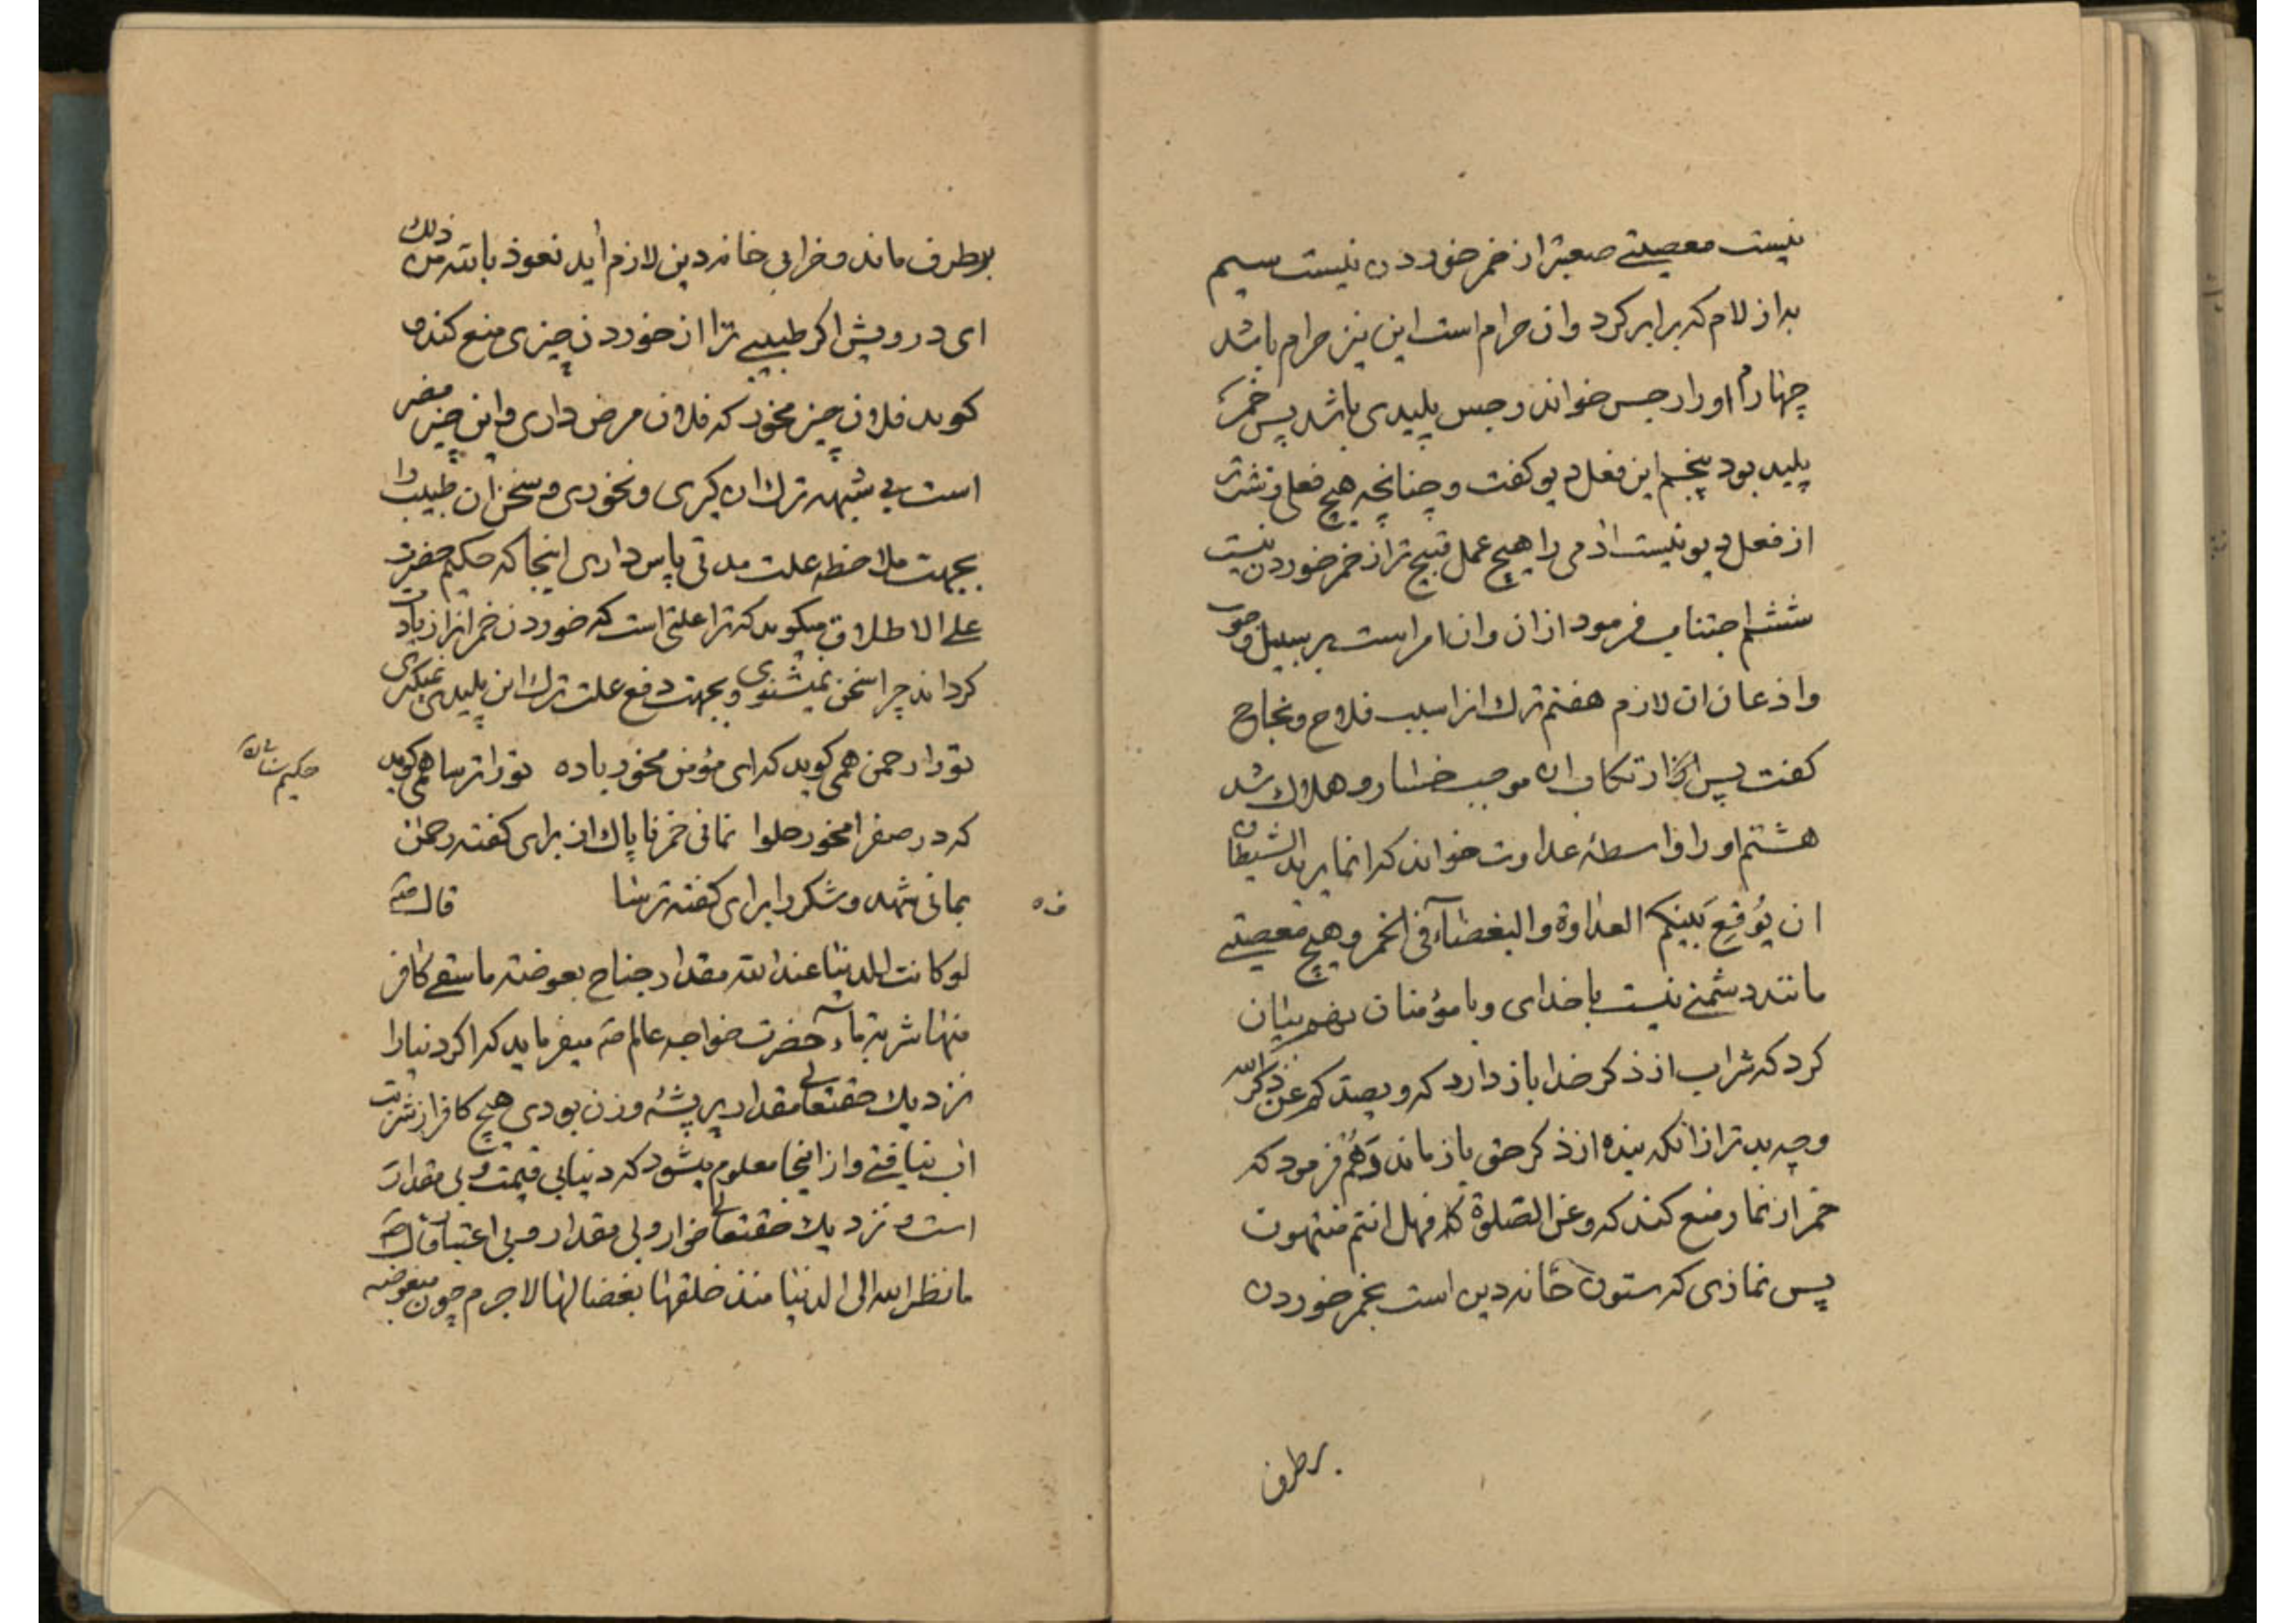 نیست معصیتے صعبتر از خمر خوردن نیست سیم
بداز لام که برابر کرد وان حرام است این نیز حرام باشد
چهارم اورا رجس خواند رجس پلیدی باشد پس خمر
پلید بود پنجم این فعل دیو کفت و چنانچه هیچ فعلی زشتتر
از فعل دیو نیست ادمی را هیچ عمل قبیح تر از خمر خوردن نیست
ششم اجتناب فرمود ازان وان امر است بر سبیل وجوب
واذعان ان لازم هفتم ترك انرا سبب فلاح ونجاح
کفت پس ارتکاب ان موجب خسار و هلاك شد
هشتم اورا واسطهٔ عداوت خواند که انما یرید الشیطان
ان یُوقِعَ بَینکم العداوة والبغضآء فی الخمر و هیچ معصیتے
مانند دشمنے نیست با خدای وبا مؤمنان نهم بیان
کرد که شراب از ذکر خدا باز دارد که ویصدکم عن ذکر الله
وچه بد تر ازانکه بنده از ذکر حق باز ماند دَهُم فرمود که
خمر از نماز منع کند که وعن الصلوة فهل انتم منتهون
پس نمازی که ستون خانه دین است بخمر خوردن
برطرف
برطرف ماند و خرابی خانه دین لازم آید نعوذ بالله من ذلك
ای درویش اکر طبیبے ترا از خوردن چیزی منع کند و
کوید فلان چیز مخور که فلان مرض داری واین چیز مضر
است بے شبهه ترك ان کیری و نخوری و سخن ان طبیب را
بجهت ملاحظه علت مدتی پاس داری اینجا که حکیم حضرت
علی الاطلاق میکوید که ترا علتی است که خوردن خمر انرا زیاد
کرداند چرا سخن نمیشنوی و بجهت دفع علت ترك این پلیدی نمیکیری
تورا رحمن همی کوید که ای مؤمن مخور باده تورا ترسا همی کوید
که در صفرا مخور حلوا نمانی خمر ناپاك از برای کفته رحمن
بمانی شهد و شکر را برای کفته ترسا قال
لو کانت الدنیا عند الله مقدار جناح بعوضته ما سقی کافر
منها شربة ماء حضرت خواجه عالم میفرماید که اکر دنیا را
نزدیك حقتعالی مقدار پر پشهٔ وزن بودی هیچ کافر از شربت
اب نیافتے و از اینجا معلوم میشود که دنیا بی قیمت و بی مقدار
است و نزدیك حقتعالی خوار و بی مقدار و بی اعتبار قال
ما نظر الله الی الدنیا منذ خلقها بغضا لها لاجرم چون مبغوضه
حکیم سنائی